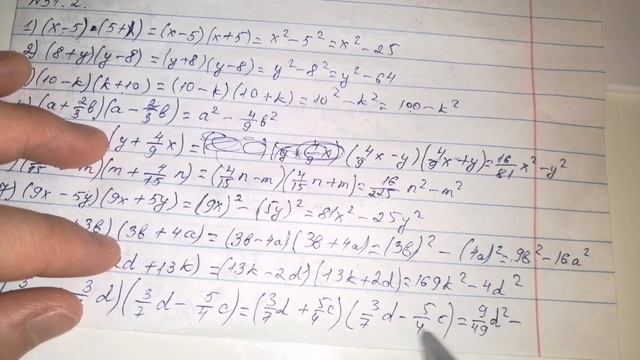 №31.2.
1) (x-5)·(5+x)=(x-5)(x+5)=x²-5²=x²-25
2) (8+y)(y-8)=(y+8)(y-8)=y²-8²=y²-64
)(10-k)(k+10)=(10-k)(10+k)=10²-k²=100-k²
(a+2/3b)(a-2/3b)=a²-4/9b²
(y+4/9x)=(4/9x-y)(4/9x+y)=16/81x²-y²
n-m)(m+4/15n)=(4/15n-m)(4/15n+m)=16/225n²-m²
7) (9x-5y)(9x+5y)=(9x)²-(5y)²=81x²-25y²
3b)(3b+4a)=(3b-4a)(3b+4a)=(3b)²-(4a)²=9b²-16a²
2d+13k)=(13k-2d)(13k+2d)=169k²-4d²
d)(3/7d-5/4c)=(3/7d+5/4c)(3/7d-5/4c)=9/49d²-